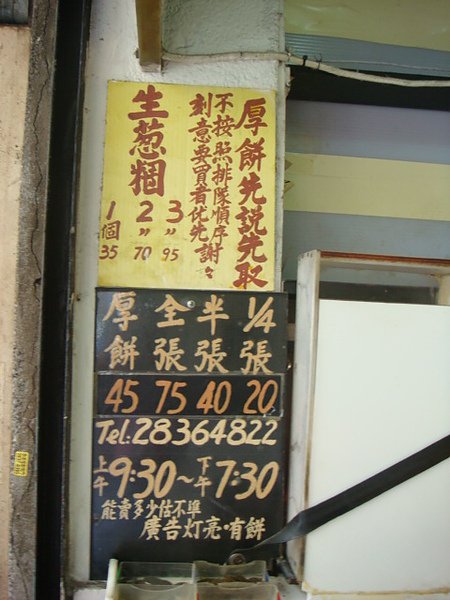 厚餅先説先取
不按照排隊順序
刻意要買者优先謝々
生葱糰
1個 35
2〃 70
3〃 95
厚餅 全張 半張 1/4張
45 75 40 20
Tel:28364822
上午9:30～下午7:30
能賣多少估不準
廣告灯亮·有餅